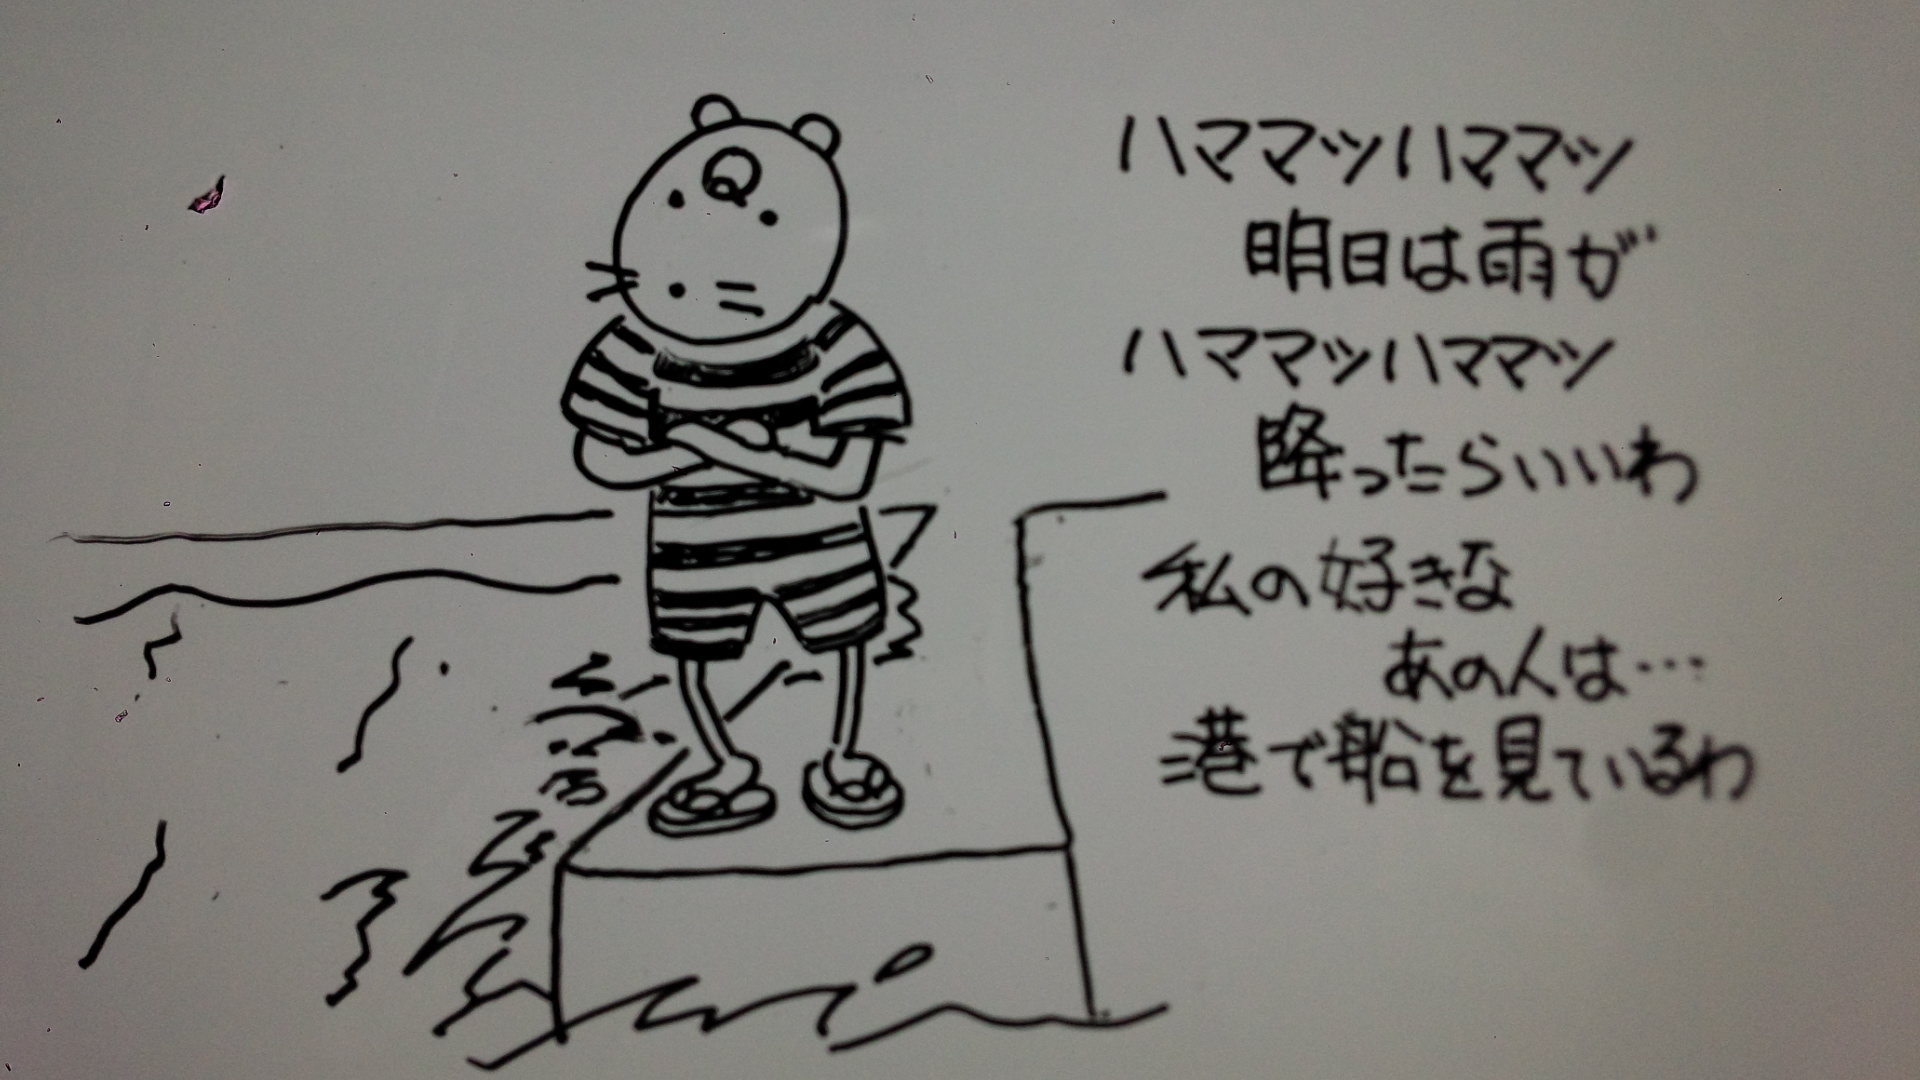 Q
ハママツハママツ
明日は雨が
ハママツハママツ
降ったらいいわ
私の好きな
あの人は…
港で船を見ているわ